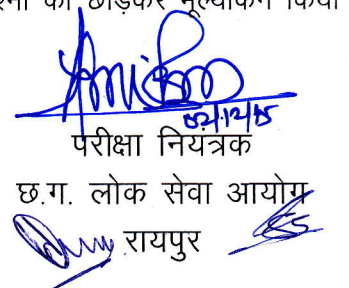 को छोड़कर मूल्यांकन किया
02/12/15
परीक्षा नियंत्रक
छ.ग. लोक सेवा आयोग
रायपुर